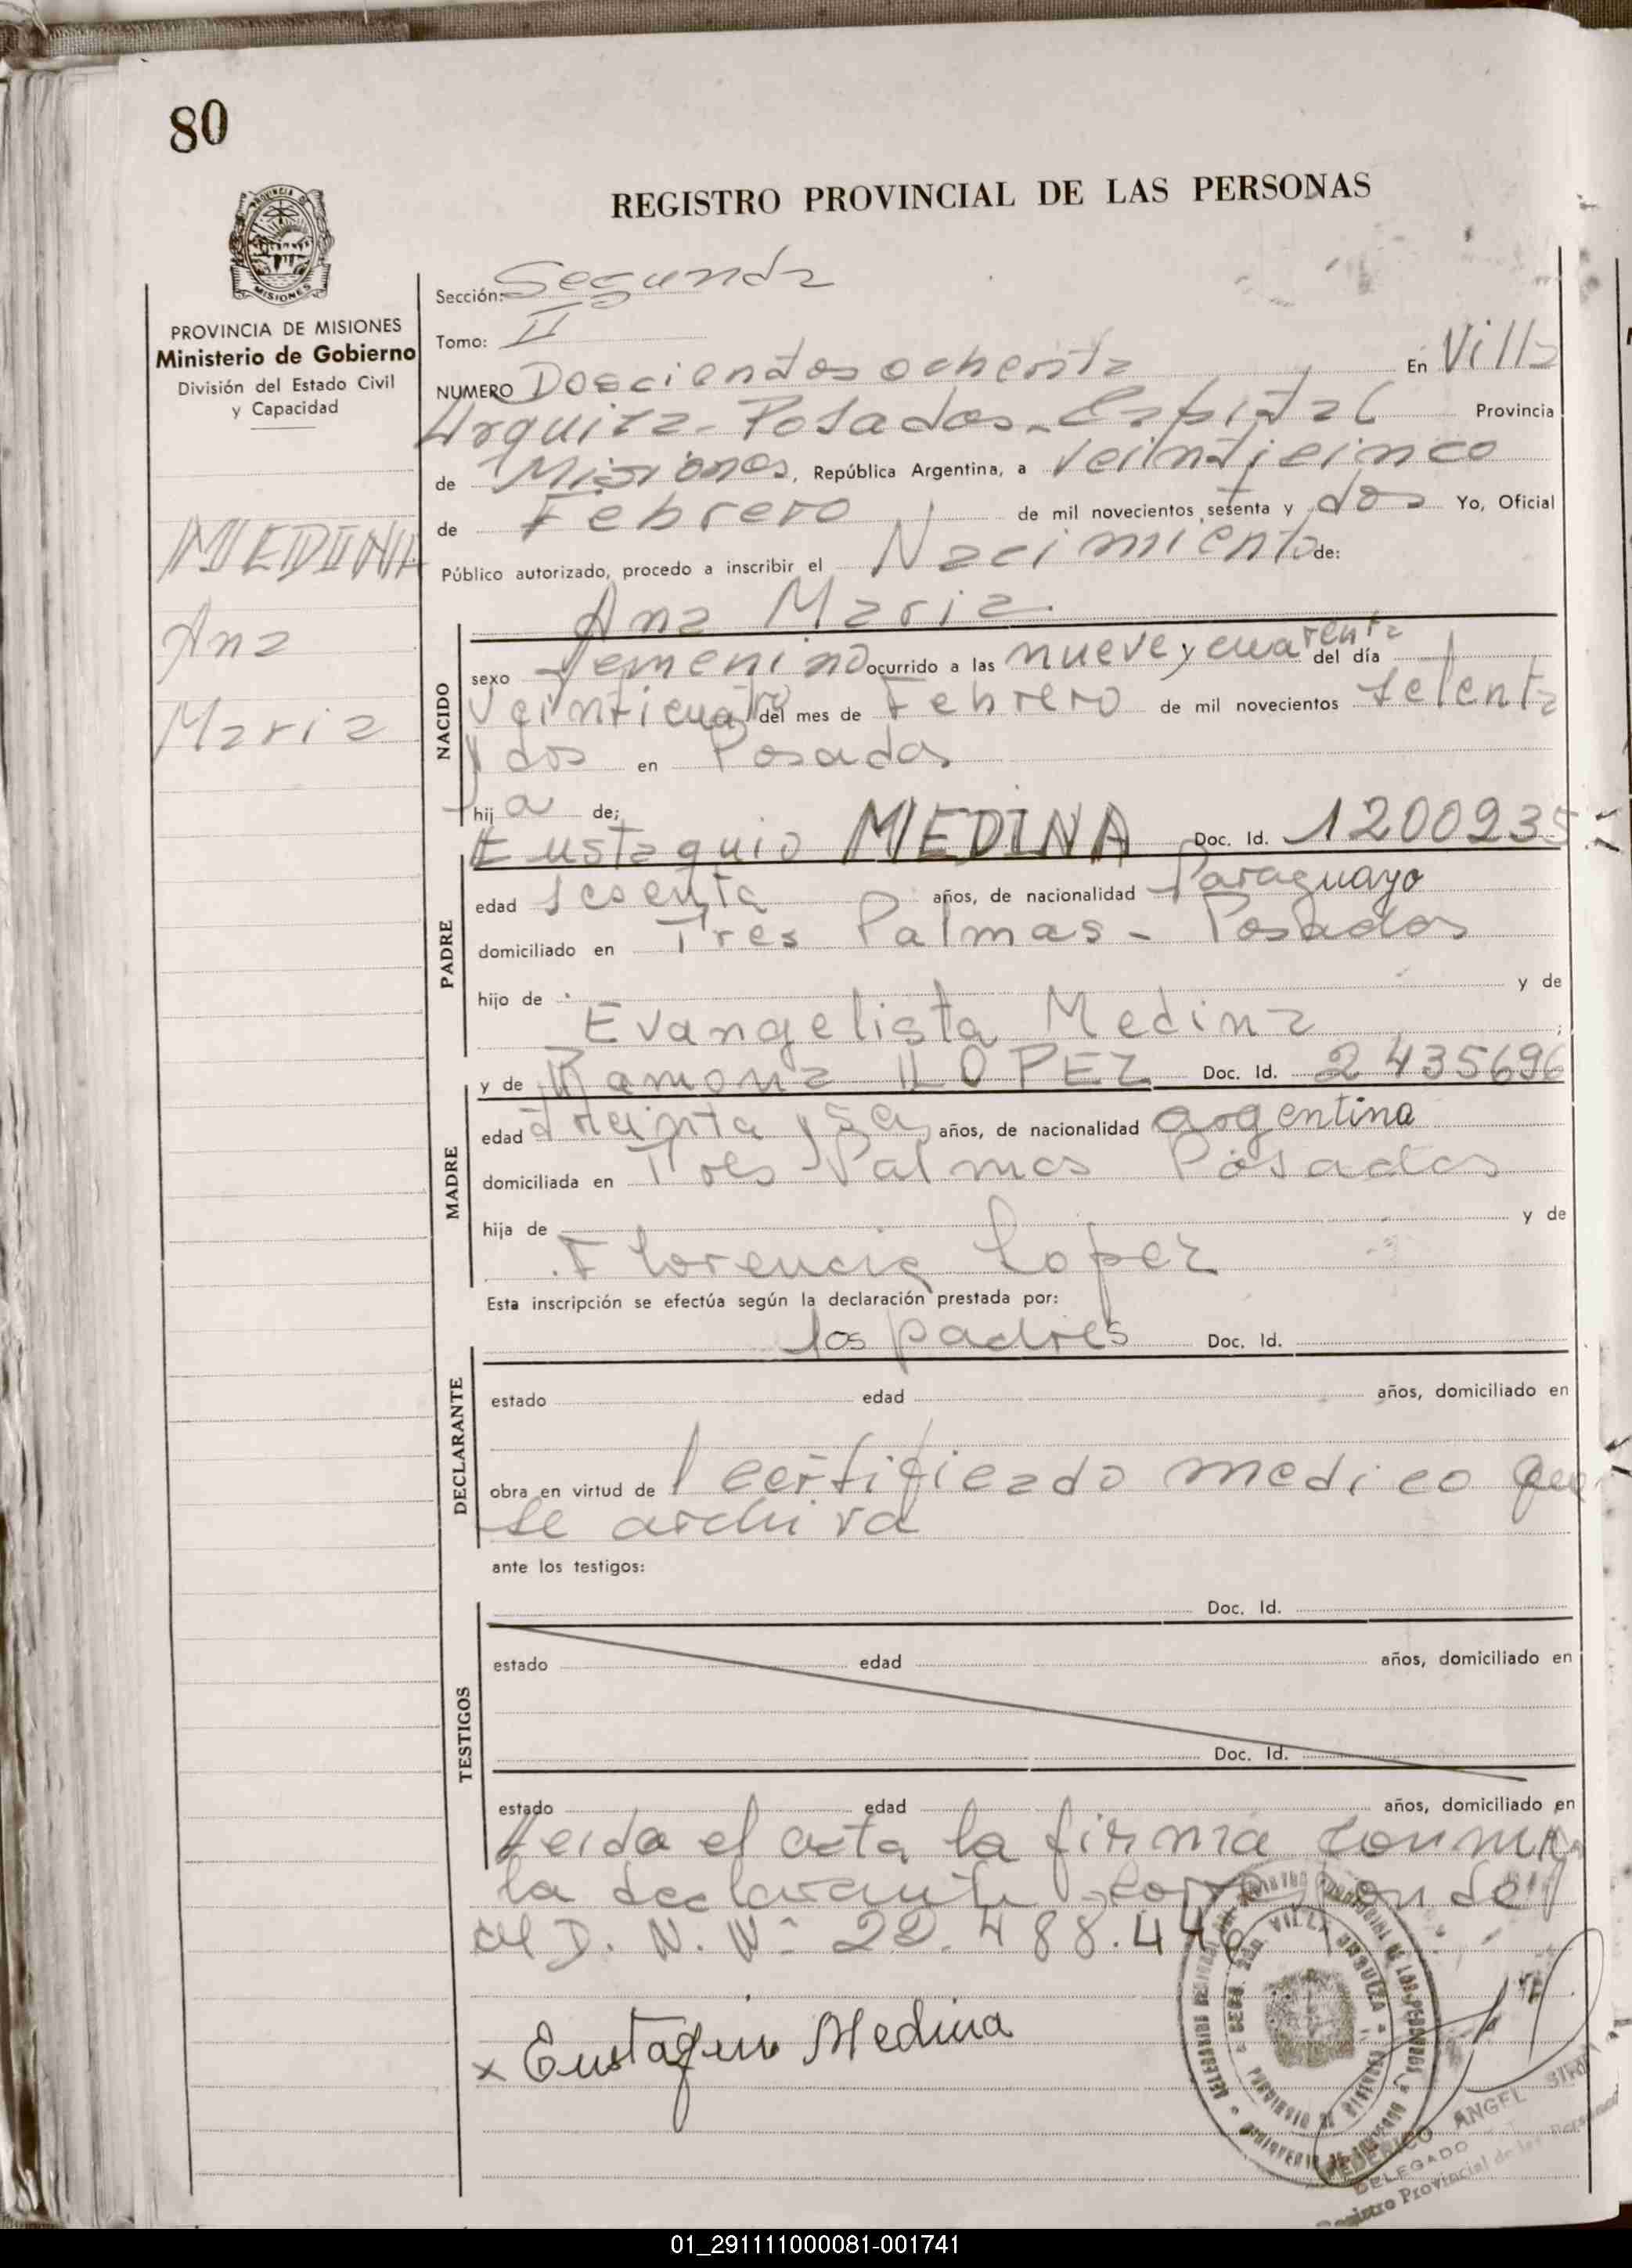 80
REGISTRO PROVINCIAL DE LAS PERSONAS
PROVINCIA
MISIONES
PROVINCIA DE MISIONES
Ministerio de Gobierno
División del Estado Civil
y Capacidad
MEDINA
Ana
Maria
Sección: Segunda
Tomo: II
NUMERO Doscientos ochenta En Villa
Urquiza - Posadas - Capital Provincia
de Misiones, República Argentina, a Veinticinco
de Febrero de mil novecientos sesenta y dos Yo, Oficial
Público autorizado, procedo a inscribir el Nacimiento de:
Ana Maria
NACIDO
sexo femenino ocurrido a las nueve y cuarenta del día
Veinticuatro del mes de Febrero de mil novecientos setenta
y dos en Posadas
hij a de;
Eustaquio MEDINA Doc. Id. 1200935
PADRE
edad sesenta años, de nacionalidad Paraguayo
domiciliado en Tres Palmas - Posadas
hijo de y de
Evangelista Medina ;
y de Ramona LOPEZ Doc. Id. 2435696
MADRE
edad treinta y años, de nacionalidad argentina
domiciliada en Tres Palmas Posadas
hija de y de
Florencia Lopez
Esta inscripción se efectúa según la declaración prestada por:
los padres Doc. Id.
DECLARANTE
estado edad años, domiciliado en
obra en virtud de certificado medico que
se archiva
ante los testigos:
Doc. Id.
TESTIGOS
estado edad años, domiciliado en
Doc. Id.
estado edad años, domiciliado en
Leida el acta la firma conmigo
la declarante corresponde
al D. N. Nº 22.488.446
x Eustaquio Medina
VILLA URQUIZA
PROVINCIA DE MISIONES
FEDERICO ANGEL
DELEGADO
Registro Provincial de las Personas
01_291111000081-001741